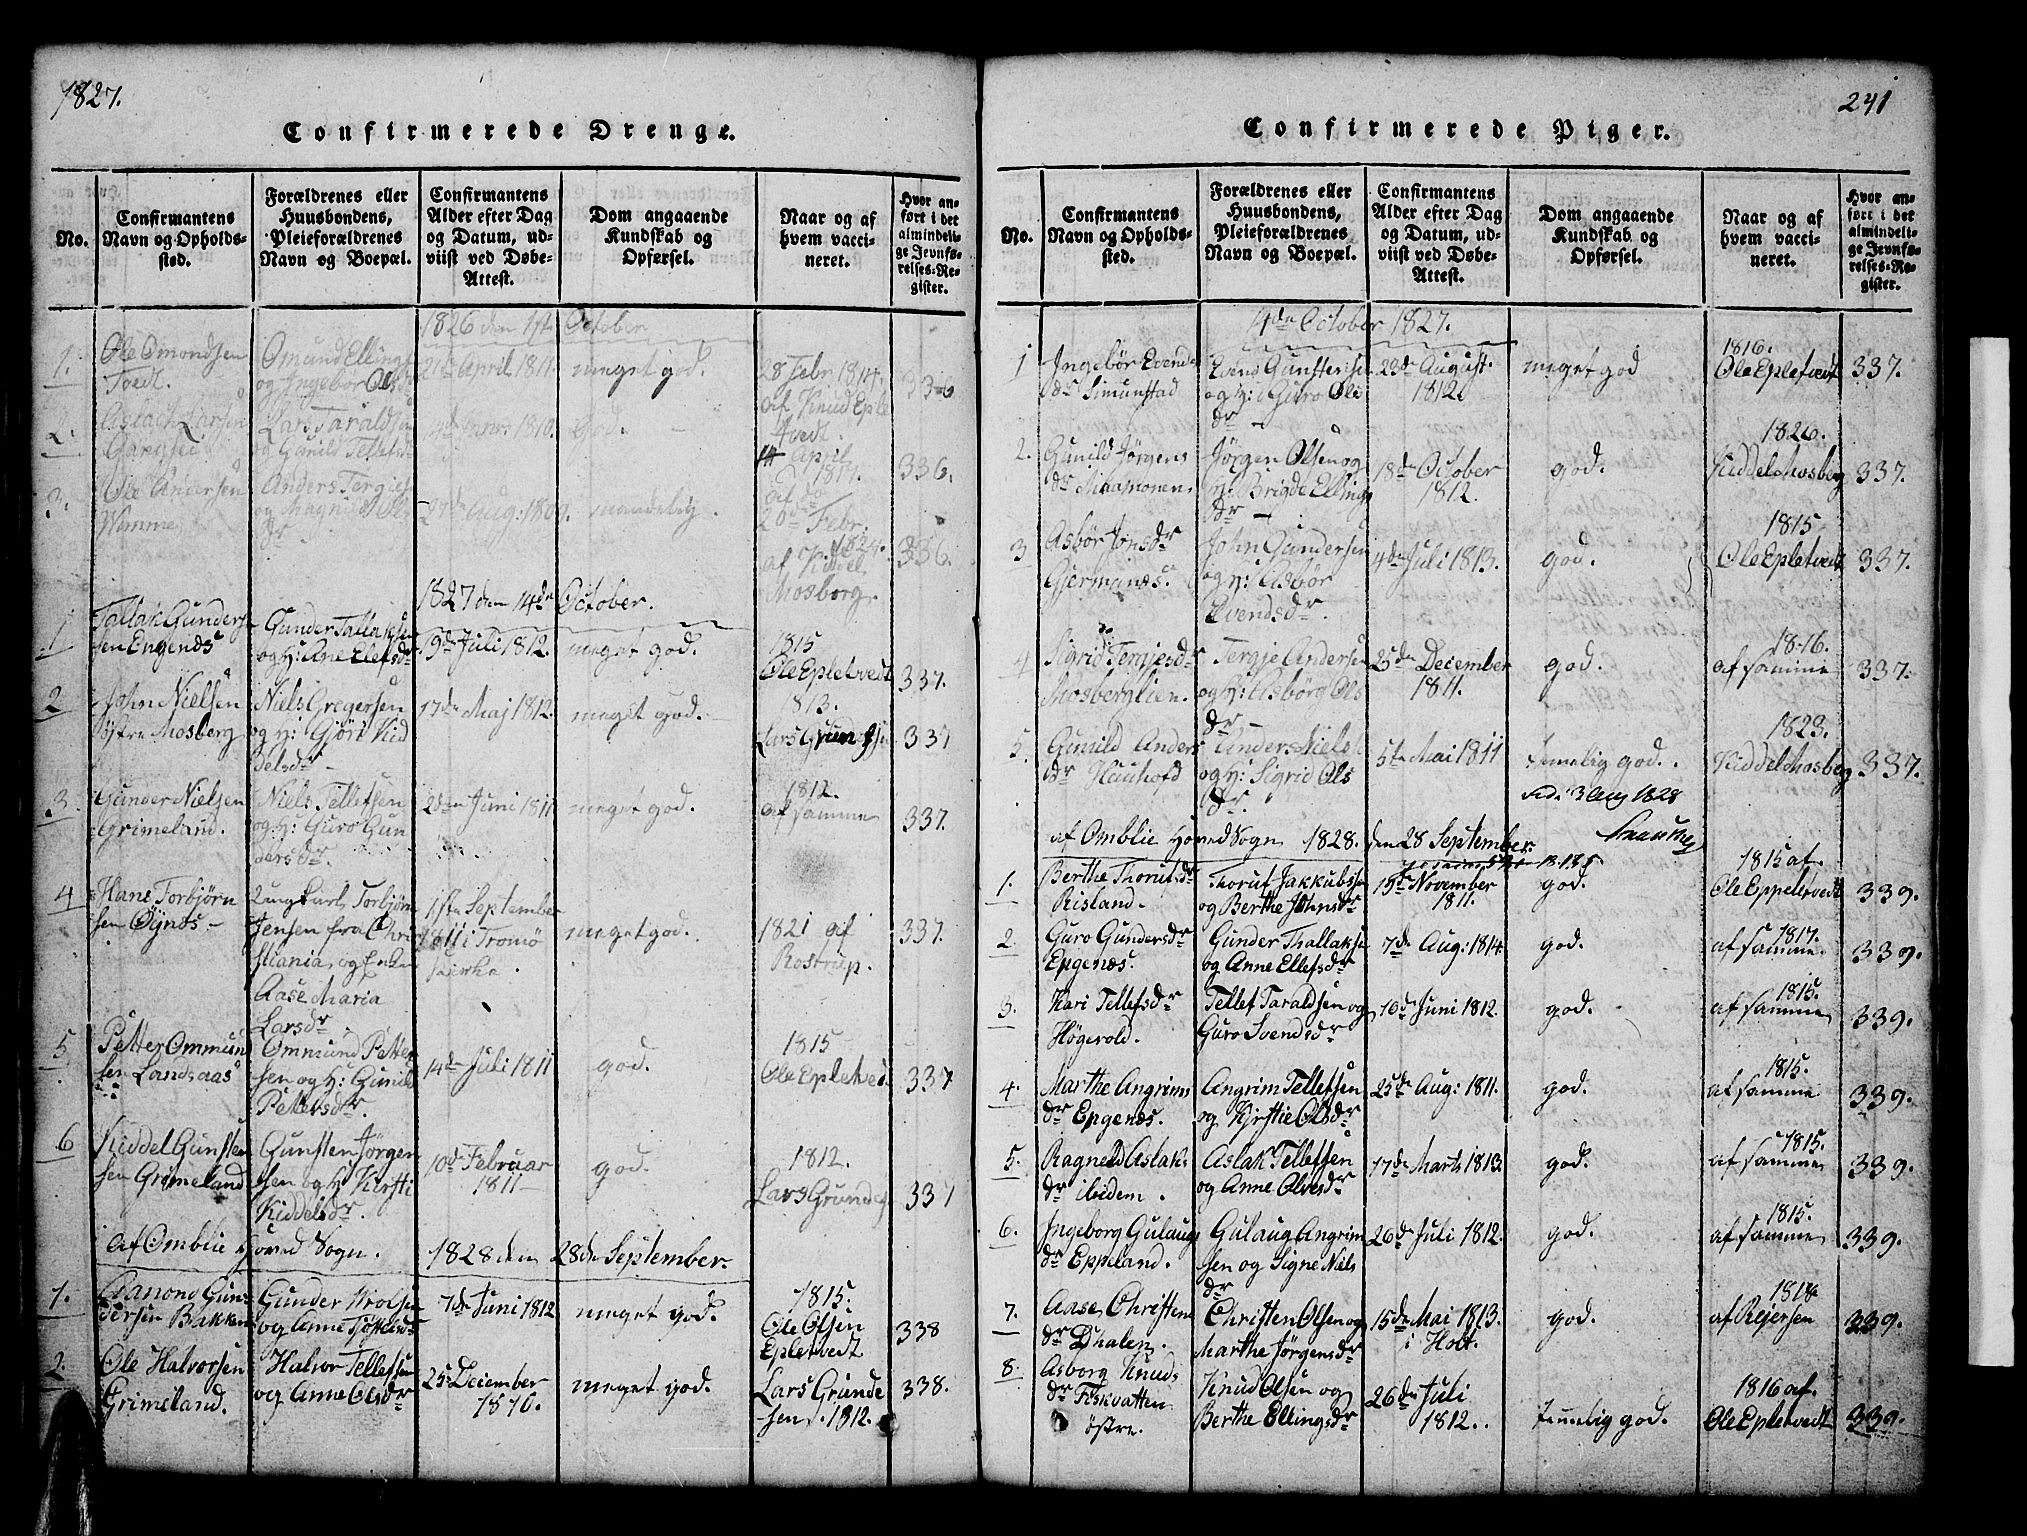 1827.
Confirmerede Drenge.
No.
Confirmantens
Navn og Opholds-
sted.
Forældrenes eller
Huusbondens,
Pleieforældrenes
Navn og Boepæl.
Confirmantens
Alder efter Dag
og Datum, ud-
viist ved Døbe-
Attest.
Dom angaaende
Kundskab og
Opførsel.
Naar og af
hvem vacci-
neret.
Hvor an-
ført i det
almindeli-
ge Jevnfø-
relses-Re-
gister.
1826 den 1st October
1.
Ole Omondsen
Tvedt.
Omund Ellings
og Ingebor Ols
21de April 1811.
meget god.
28 Febr. 1814.
af Knud Eple
tvedt.
336
2.
Aslach Larsen
Lars Taraldsen
og Gunild Tellefsd
1810.
god.
14 April
1817.
af do
336.
3.
Ole Andersen
Wimme
Anders Tergies
og Magnild Ols
dr
27de Aug: 1809.
maadelig.
20de Febr.
1824.
af Kittel
Mosberg.
336.
1827 den 14de October.
1
Tallak Gunders
sen Engenæs
Gunder Tallaksen
og H: Ane Elefsdr
9de Juli 1812.
meget god.
1815
Ole Epletvedt
337.
2
John Nielsen
østre Mosberg
Niels Gregersen
og H: Gjöri Kid
delsdr
17de Maj 1812.
meget god.
1813.
Lars Grundesen
337
3.
Gunder Nielsen
Grimeland.
Niels Tellefsen
og H: Guro Gun
dersdr.
Juni 1811
meget god.
1812.
af samme
337.
4
Hans Torbjørn
sen Øynæs
Ungkarl Torbjørn
Jensen fra Chri
stiania, og Enken
Aase Maria
Larsdr.
1ste September
1811 i Tromø
Kirke.
meget god.
1821 af
Rostrup.
337.
5
Petter Ommun
sen Landsaas
Ommund Petter
sen og H: Gunild
Pettersdr.
14de Juli 1811
god.
1815
Ole Epletved.
337
6
Kiddel Gunsten
sen Grimeland
Gunsten Jørgen
sen og H: Kirsti
Kiddelsdr.
10de Februar
1811
god.
1812.
Lars Grundes
337
af Omblie Hoved Sogn. 1828 den 28de September.
1.
Aanond Gun
dersen Bakken
Gunder Wrolsen
og Anne
7de Juni 1812
meget god.
1815.
Ole Olsen
Epletvedt.
338
2.
Ole Halvorsen
Grimeland.
Halvor Tellefsen
og Anne Olsdr
25 December
1810.
meget god.
Lars Grunde
sen. 1812.
338.
241
Confirmerede Piger.
No.
Confirmantens
Navn og Opholds-
sted.
Forældrenes eller
Huusbondens,
Pleieforældrenes
Navn og Boepæl.
Confirmantens
Alder efter Dag
og Datum, ud-
viist ved Døbe-
Attest.
Dom angaaende
Kundskab og
Opførsel.
Naar og af
hvem vacci-
neret.
Hvor an-
ført i det
almindeli-
ge Jevnfø-
relses-Re-
gister.
14de October 1827.
1
Ingebör Evends
dr Simunstad
Evens Gunstensen
og H: Guro Ols
dr
23de August.
1812.
meget god
1816.
Ole Epletvedt
337.
2.
Gunild Jørgens
dr
Jørgen Olsen og
H: Brigde Ellings
dr
18de October
1812.
god.
1826.
Kiddel Mosberg
337.
3
Asbör Jonsdr
Gjermunes.
John Gundersen
og H: Asbör
Evendsdr.
4de Juli 1813.
god.
1815
Ole Epletvedt
337.
4
Sigrid Tergjesdr
Mosberglien.
Tergje Andersen
og H: Asbörg Ols
dr
25de December
1811.
god.
1816.
af samme
337.
5.
Gunild Anders
dr Hauhofd
Anders Niels
og H: Sigrid Ols
dr
5te Mai 1811
temmelig god.
1823.
Kiddel Mosberg
337.
3 Aug 1828
af Omblie Hoved Sogn 1828. den 28 September.
1.
Berthe Thorufsdr
Risland.
Thoruf Jakkubssen
og Berthe Johnsdr
15de November
1811.
god.
1815 af.
Ole Eppletvedt
339.
2
Guro Gundersdr
Epgenæs.
Gunder Thallaksen
og Anne Ellefsdr
7de Aug: 1814.
god.
1817.
af samme.
339.
3.
Kari Tellefsdr
Högevold.
Tellef Taraldsen og
Guro Svendsdr
16de Juni 1812.
god.
1815.
af samme
339.
4.
Marthe Angrims
dr Epgenæs.
Angrim Tellefsen
og Kjestie Olsdr
25de Aug: 1811.
god.
1815.
af samme
339.
5.
Ragneld Aslak
dr ibidem.
Aslak Tellefsen
og Anne Olvesdr
17de Marts 1813
god.
1815.
af samme
339.
6.
Ingeborg Gulaugs
dr Eppeland.
Gulaug Angrim
sen og Signe Niels
dr
26de Juli 1812.
god.
1815.
af samme
339.
7.
Aase Christens
dr Dhalen.
Christen Olsen og
Marthe Jørgensdr
15de Mai 1813.
i Holt.
god.
1818
af Rejersen
339.
8.
Asborg Knuds
dr Fiskvatten
östre.
Knud Olsen og
Berthe Ellingsdr
26de Juli
1812.
temmelig god.
1816 af.
Ole Epletvedt
339.